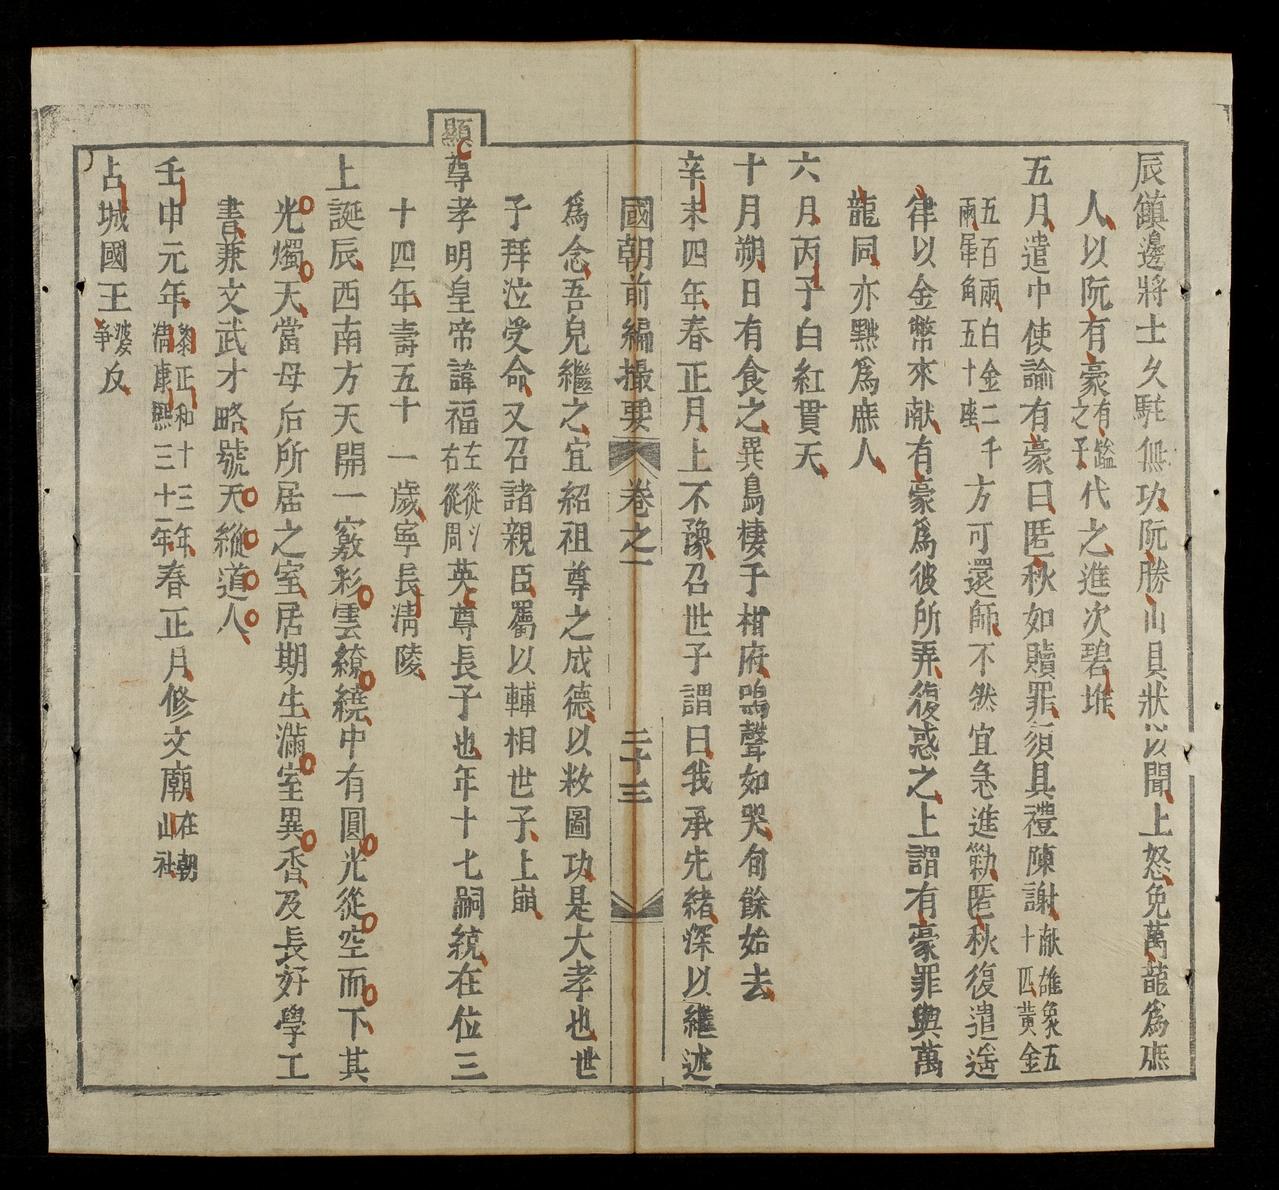 辰鎮邊將士久駐無功阮勝山具狀以聞上怒免萬龍爲庶
人以阮有豪有鑑之子代之進次碧堆
五月遣中使論有豪曰匿秋如贖罪須具禮陳謝献雄象五十匹黃金
五百兩白金二千兩犀角五十座方可還師不然宜急進勦匿秋復遣遥
律以金幣來献有豪爲彼所弄復惑之上謂有豪罪與萬
龍同亦黜爲庶人
六月丙子白紅貫天
十月朔日有食之異鳥棲于相府鳴聲如哭旬餘始去
辛未四年春正月上不豫召世子謂曰我承先緒深以繼述
國朝前編撮要 卷之一 二十三
爲念吾皃繼之宜紹祖尊之成德以敉圖功是大孝也世
子拜泣受命又召諸親臣屬以輔相世子上崩
顯尊孝明皇帝諱福左從氵右從周英尊長子也年十七嗣統在位三
十四年壽五十一歲寧長清陵
上誕辰西南方天開一竅彩雲繚繞中有圓光從空而下其
光燭天當母后所居之室居期生滿室異香及長好學工
書兼文武才略號天縱道人
壬申元年黎正和十三年清康熙三十一年春正月修文廟在朝山社
占城國王婆爭反